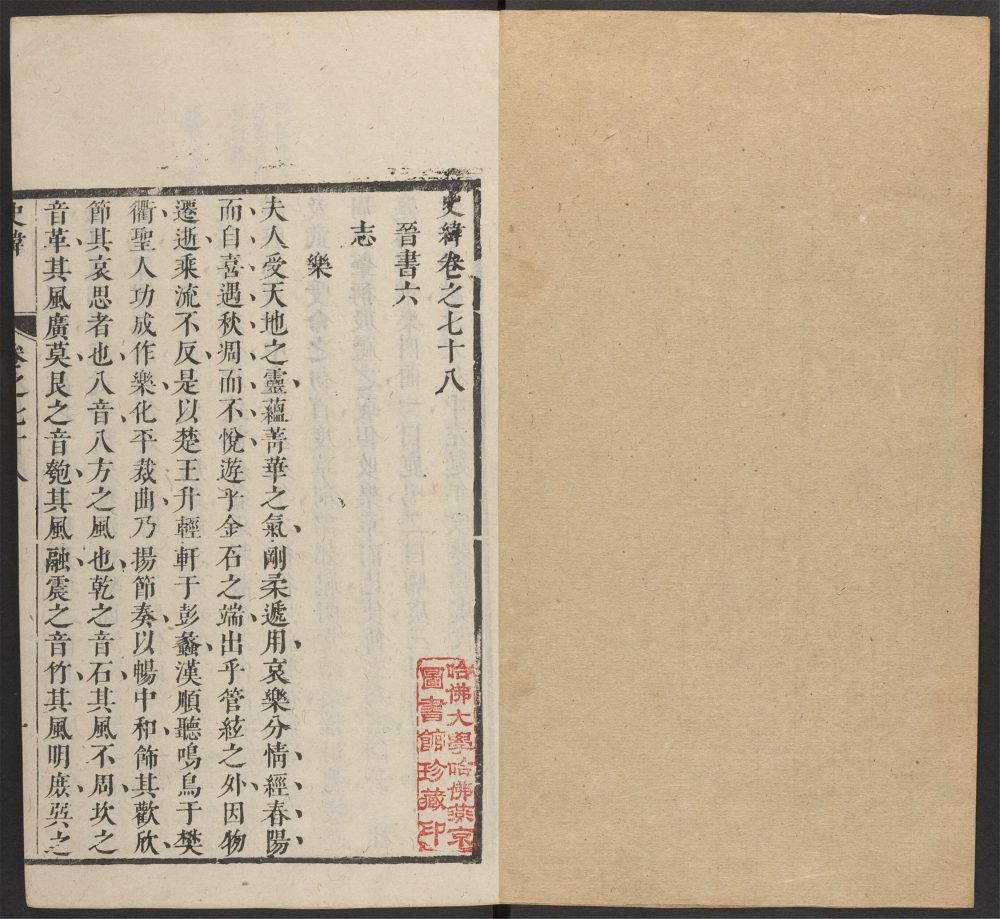 史緯卷之七十八
晉書六
志
樂
夫人受天地之靈蘊菁華之氣剛柔遞用哀樂分情經春陽
而自喜遇秋凋而不悅遊乎金石之端出乎管絃之外因物
遷逝乘流不反是以楚王升輕軒于彭蠡漢順聽鳴鳥于樊
衢聖人功成作樂化平裁曲乃揚節奏以暢中和飾其歡欣
節其哀思者也八音八方之風也乾之音石其風不周坎之
音革其風廣莫艮之音匏其風融震之音竹其風明庶巽之
史緯
卷之七十八
一
哈佛大學哈佛燕京
圖書館珍藏印